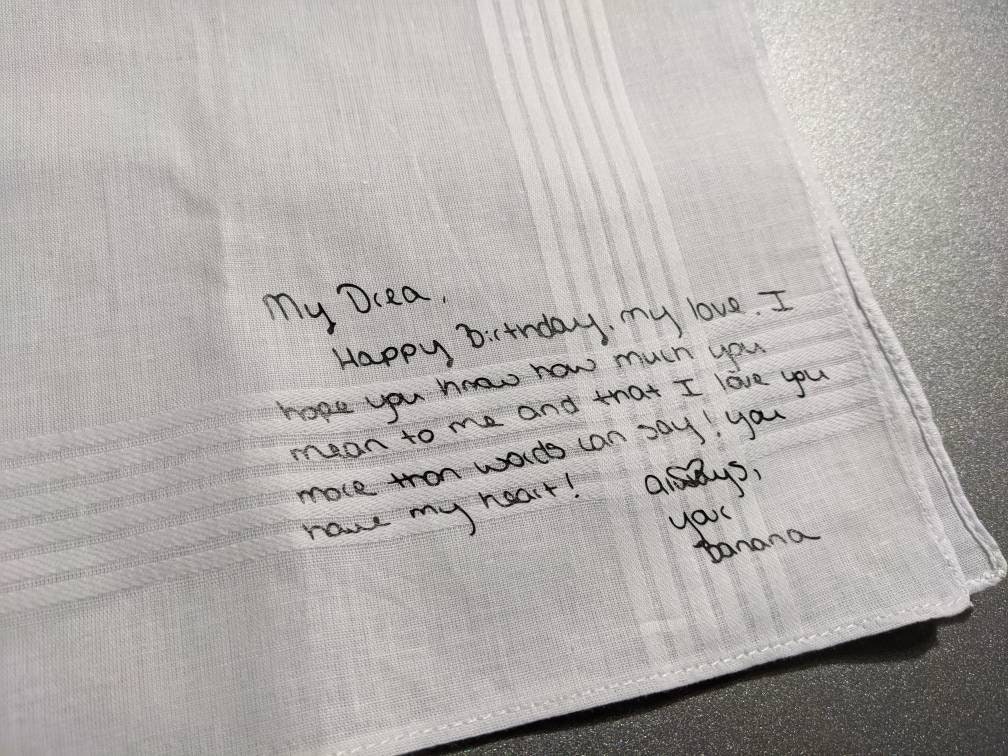 My Drea,
Happy Birthday, my love. I
hope you know how much you
mean to me and that I love you
more than words can say! you
have my heart!
always,
your
Banana